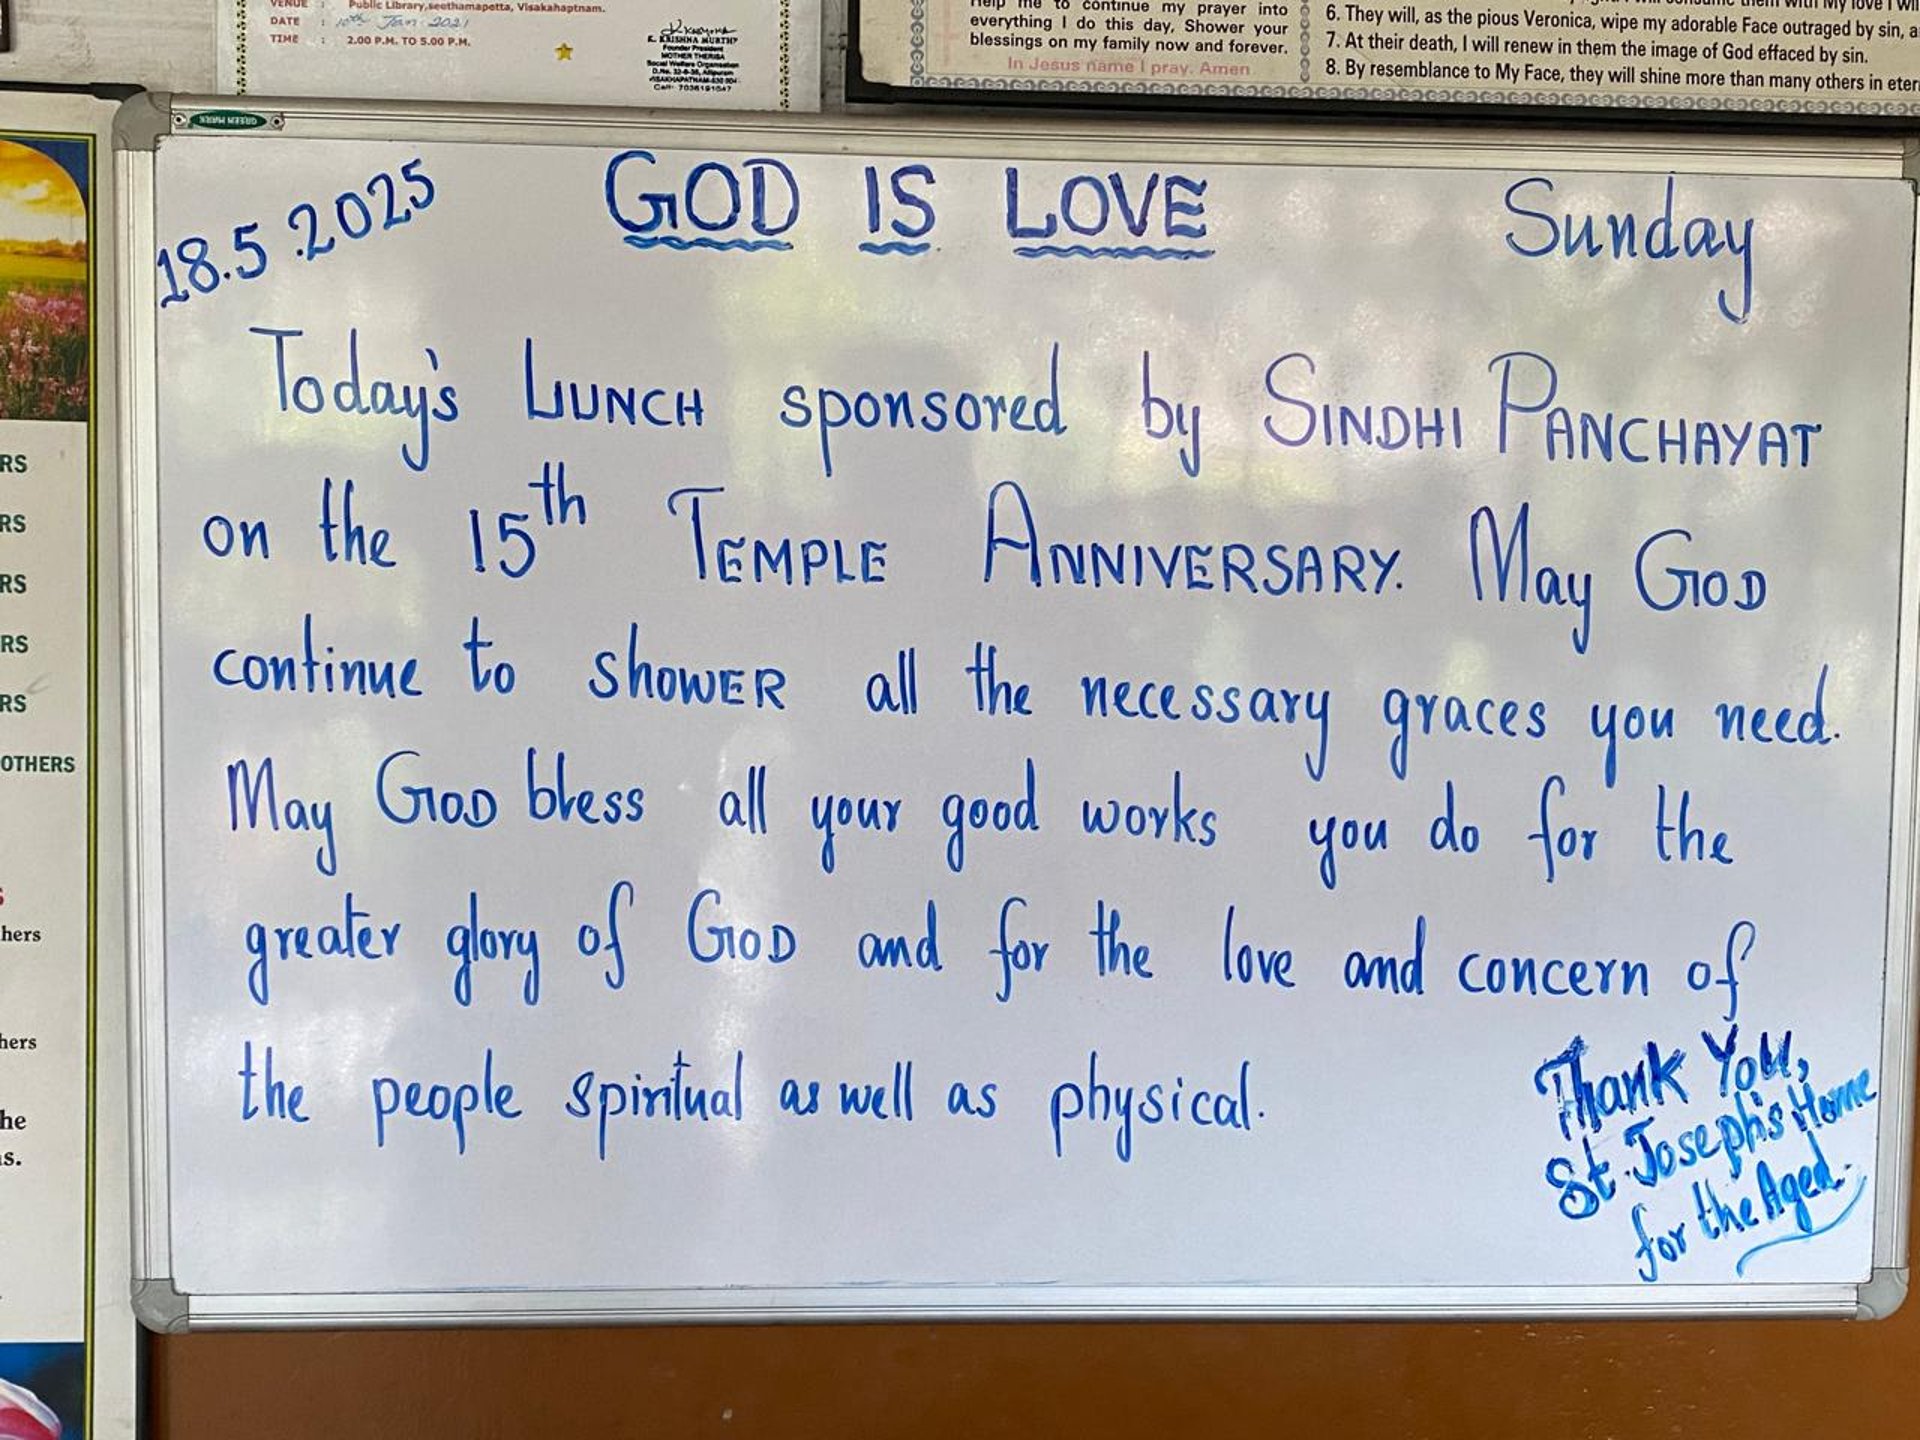 VENUE : Public Library,seethamapetta, Visakahaptnam.
DATE : 10th Jan 2021
TIME : 2.00 P.M. TO 5.00 P.M.
K. KRISHNA MURTHY
Founder President
MOTHER THERISA
Social Welfare Organisation
Cell: 7036191047
Help me to continue my prayer into
everything I do this day, Shower your
blessings on my family now and forever.
In Jesus name I pray. Amen
6. They will, as the pious Veronica, wipe my adorable Face outraged by sin, a
7. At their death, I will renew in them the image of God effaced by sin.
8. By resemblance to My Face, they will shine more than many others in eter
GREEN MARK
18.5.2025 GOD IS LOVE Sunday
Today's LUNCH sponsored by SINDHI PANCHAYAT
on the 15th TEMPLE ANNIVERSARY. May GOD
continue to SHOWER all the necessary graces you need.
May GOD bless all your good works you do for the
greater glory of GOD and for the love and concern of
the people spiritual as well as physical.
Thank You,
St. Joseph's Home
for the Aged.
RS
RS
RS
RS
RS
OTHERS
hers
hers
he
s.